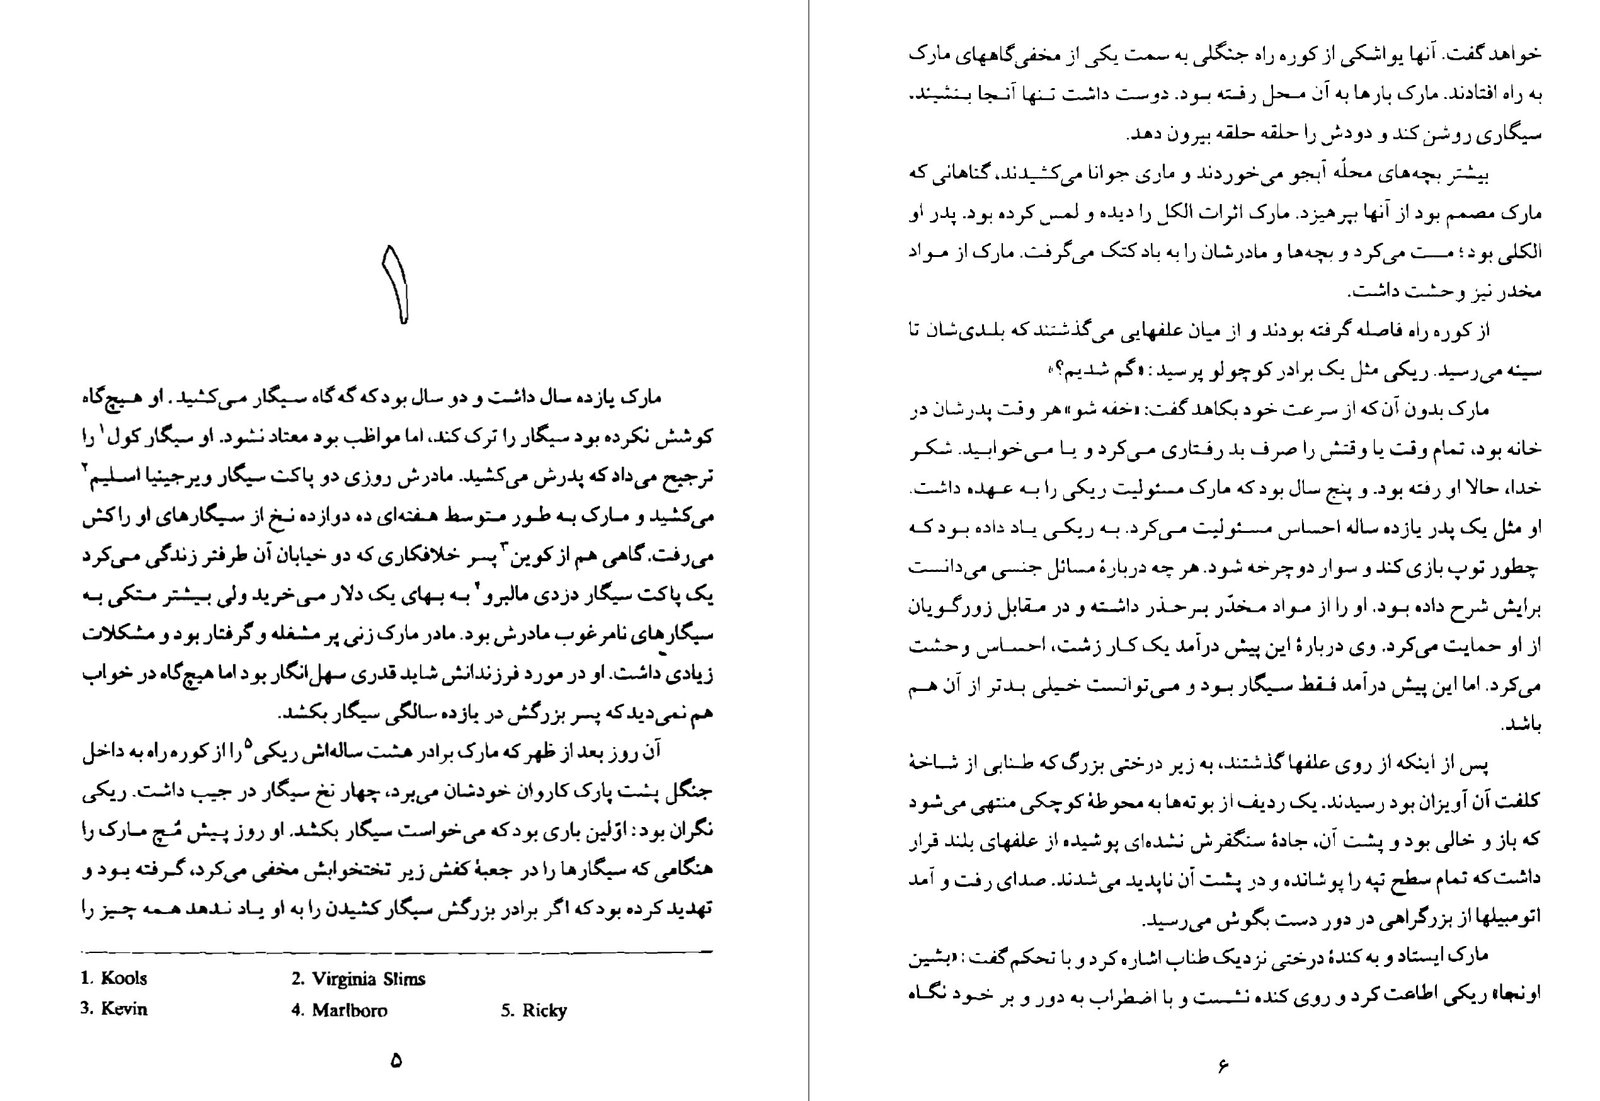 ۱
مارک یازده سال داشت و دو سال بود که گه گاه سیگار می‌کشید. او هیچ‌گاه
کوشش نکرده بود سیگار را ترک کند، اما مواظب بود معتاد نشود. او سیگار کول۱ را
ترجیح می‌داد که پدرش می‌کشید. مادرش روزی دو پاکت سیگار ویرجینیا اسلیم۲
می‌کشید و مارک به طور متوسط هفته‌ای ده دوازده نخ از سیگارهای او را کش
می‌رفت. گاهی هم از کوین۳ پسر خلافکاری که دو خیابان آن طرفتر زندگی می‌کرد
یک پاکت سیگار دزدی مالبرو۴ به بهای یک دلار می‌خرید ولی بیشتر متکی به
سیگارهای نامرغوب مادرش بود. مادر مارک زنی پر مشغله و گرفتار بود و مشکلات
زیادی داشت. او در مورد فرزندانش شاید قدری سهل‌انگار بود اما هیچ‌گاه در خواب
هم نمی‌دید که پسر بزرگش در یازده سالگی سیگار بکشد.
آن روز بعد از ظهر که مارک برادر هشت ساله‌اش ریکی۵ را از کوره راه به داخل
جنگل پشت پارک کاروان خودشان می‌برد، چهار نخ سیگار در جیب داشت. ریکی
نگران بود: اوّلین باری بود که می‌خواست سیگار بکشد. او روز پیش مُچ مارک را
هنگامی که سیگارها را در جعبهٔ کفش زیر تختخوابش مخفی می‌کرد، گرفته بود و
تهدید کرده بود که اگر برادر بزرگش سیگار کشیدن را به او یاد ندهد همه چیز را
1. Kools 2. Virginia Slims
3. Kevin 4. Marlboro 5. Ricky
۵
خواهد گفت. آنها یواشکی از کوره راه جنگلی به سمت یکی از مخفی‌گاههای مارک
به راه افتادند. مارک بارها به آن محل رفته بود. دوست داشت تنها آنجا بنشیند.
سیگاری روشن کند و دودش را حلقه حلقه بیرون دهد.
بیشتر بچه‌های محلّه آبجو می‌خوردند و ماری جوانا می‌کشیدند، گناهانی که
مارک مصمم بود از آنها بپرهیزد. مارک اثرات الکل را دیده و لمس کرده بود. پدر او
الکلی بود؛ مست می‌کرد و بچه‌ها و مادرشان را به باد کتک می‌گرفت. مارک از مواد
مخدر نیز وحشت داشت.
از کوره راه فاصله گرفته بودند و از میان علفهایی می‌گذشتند که بلندی‌شان تا
سینه می‌رسید. ریکی مثل یک برادر کوچولو پرسید: «گم شدیم؟»
مارک بدون آن‌که از سرعت خود بکاهد گفت: «خفه شو» هر وقت پدرشان در
خانه بود، تمام وقت یا وقتش را صرف بد رفتاری می‌کرد و یا می‌خوابید. شکر
خدا، حالا او رفته بود. و پنج سال بود که مارک مسئولیت ریکی را به عهده داشت.
او مثل یک پدر یازده ساله احساس مسئولیت می‌کرد. به ریکی یاد داده بود که
چطور توپ بازی کند و سوار دوچرخه شود. هر چه دربارهٔ مسائل جنسی می‌دانست
برایش شرح داده بود. او را از مواد مخدّر برحذر داشته و در مقابل زورگویان
از او حمایت می‌کرد. وی دربارهٔ این پیش درآمد یک کار زشت، احساس وحشت
می‌کرد. اما این پیش درآمد فقط سیگار بود و می‌توانست خیلی بدتر از آن هم
باشد.
پس از اینکه از روی علفها گذشتند، به زیر درختی بزرگ که طنابی از شاخهٔ
کلفت آن آویزان بود رسیدند. یک ردیف از بوته‌ها به محوطهٔ کوچکی منتهی می‌شود
که باز و خالی بود و پشت آن، جادهٔ سنگفرش نشده‌ای پوشیده از علفهای بلند قرار
داشت که تمام سطح تپه را پوشانده و در پشت آن ناپدید می‌شدند. صدای رفت و آمد
اتومبیلها از بزرگراهی در دور دست بگوش می‌رسید.
مارک ایستاد و به کندهٔ درختی نزدیک طناب اشاره کرد و با تحکم گفت: «بشین
اونجا» ریکی اطاعت کرد و روی کنده نشست و با اضطراب به دور و بر خود نگاه
۶